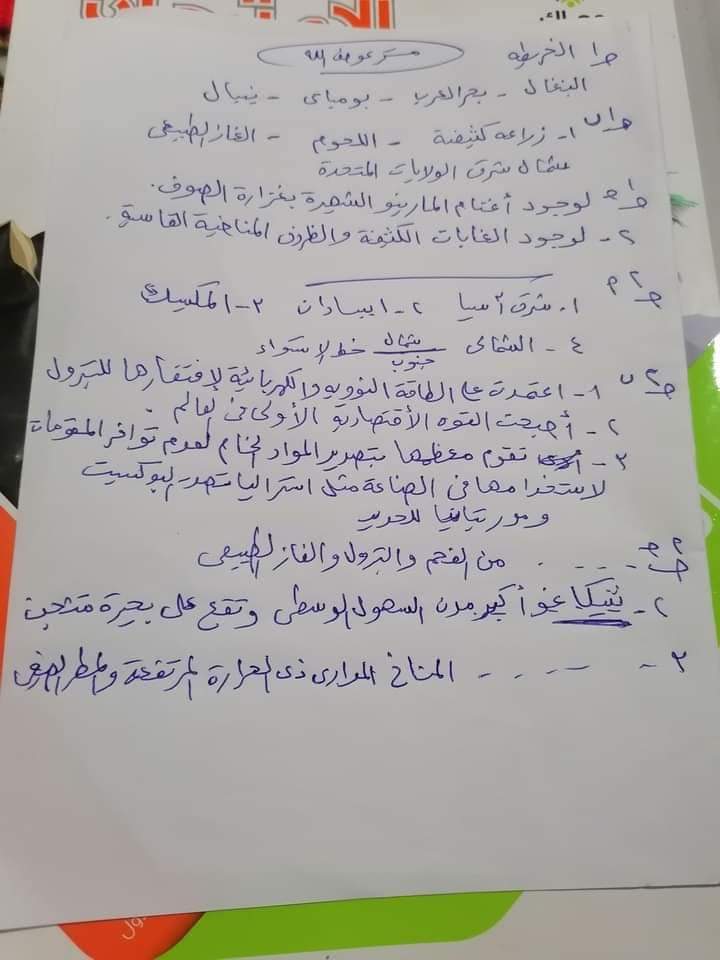 مستر عوض الله
ج١ الخريطه
البنغال - بحر العرب - بومباى - نيبال
ج١ ب ١- زراعه كثيفة - اللحوم - الغاز الطبيعى
شمال شرق الولايات المتحدة
ج١ ج لوجود أغنام المارينو الشهيرة بغزارة الصوف.
٢- لوجود الغابات الكثيفة والظروف المناخية القاسية.
ج٢ م ١- شرق آسيا ٢- ايبادان ٣- المكسيك
٤- الشمالى شمال جنوب خط الإستواء
ج٢ ب ١- اعتمدت على الطاقة النوويه والكهربائية لإفتقارها للبترول
٢- أصبحت القوه الأقتصادية الأولى فى العالم.
٣- تقوم معظمها بتصدير المواد الخام لعدم توافر المقومات
لاستخدامها فى الصناعة مثل استراليا تصدر البوكسيت
وموريتانيا للحديد
ج٢ ج - - - - من الفحم والبترول والغاز الطبيعى
٢- شيكاغو أكبر مدن السهول الوسطى وتقع على بحيرة متشجن
٣- - - - - المناخ المدارى ذى الحرارة المرتفعة والمطر الصيفى